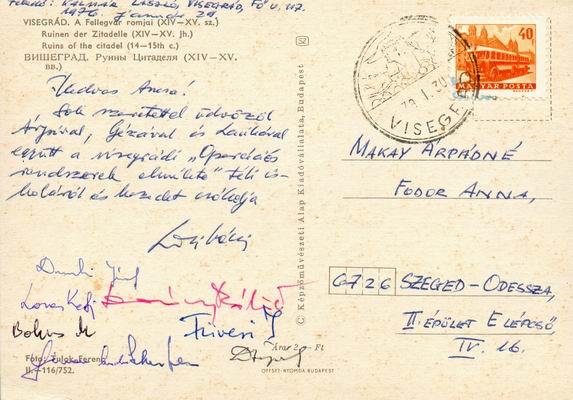 Feladó: KALMÁR LÁSZLÓ, VISEGRÁD, FŐ U. 117.
1976 január 29.
VISEGRÁD. A Fellegvár romjai (XIV—XV. sz.)
Ruinen der Zitadelle (XIV—XV. Jh.)
Ruins of the citadel (14—15th c.)
ВИШЕГРАД. Руины Цитаделя (XIV—XV. вв.)
Kedves Anna!
Sok szeretettel üdvözöl
Árpival, Gézával és Lacikával
együtt a visegrádi „Operációs
rendszerek elmélete" téli is-
koláról és kezedet csókolja
Laci bácsi
Dombi József
Bohus M
Füvesi I
Foto: Zulok Ferenc
II.—116/752.
Árar 2,— Ft
OFFSET-NYOMDA BUDAPEST
© Képzőművészeti Alap Kiadóvállalata, Budapest
52
40
MAGYAR POSTA
VISEGRÁD
MAKAY ÁRPÁDNÉ
FODOR ANNA,
6726 SZEGED-ODESSZA,
II. ÉPÜLET E LÉPCSŐ,
IV. 16.